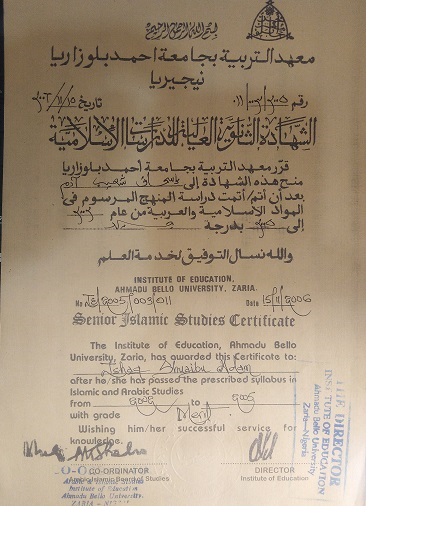 بسم الله الرحمن الرحيم
معهد التربية بجامعة احمد بلو زاريا
نيجيريا
رقم
تاريخ
الشهادة الثانوية العالية للدراسات الاسلامية
قرّر معهد التربية بجامعة أحمد بلو زاريا
منح هذه الشهادة إلى
بعد أن أتمّ/أتمت دراسة المنهج المرسوم في
المواد الاسلامية والعربية من عام
إلى بدرجة
والله نسال التوفيق لخدمة العلم
INSTITUTE OF EDUCATION,
AHMADU BELLO UNIVERSITY, ZARIA.
No Date 15/11/2006
Senior Islamic Studies Certificate
The Institute of Education, Ahmadu Bello
University, Zaria, has awarded this Certificate to:
Ishaq Shuaibu Adam
after he/she has passed the prescribed syllabus in
Islamic and Arabic Studies
from to 2005
with grade Merit.
Wishing him/her successful service for
knowledge.
CO-ORDINATOR
Arabic Islamic Board of Studies
DIRECTOR
Institute of Education
Institute of Education
Ahmadu Bello University,
THE DIRECTOR
INSTITUTE OF EDUCATION
Ahmadu Bello University
Zaria-Nigeria